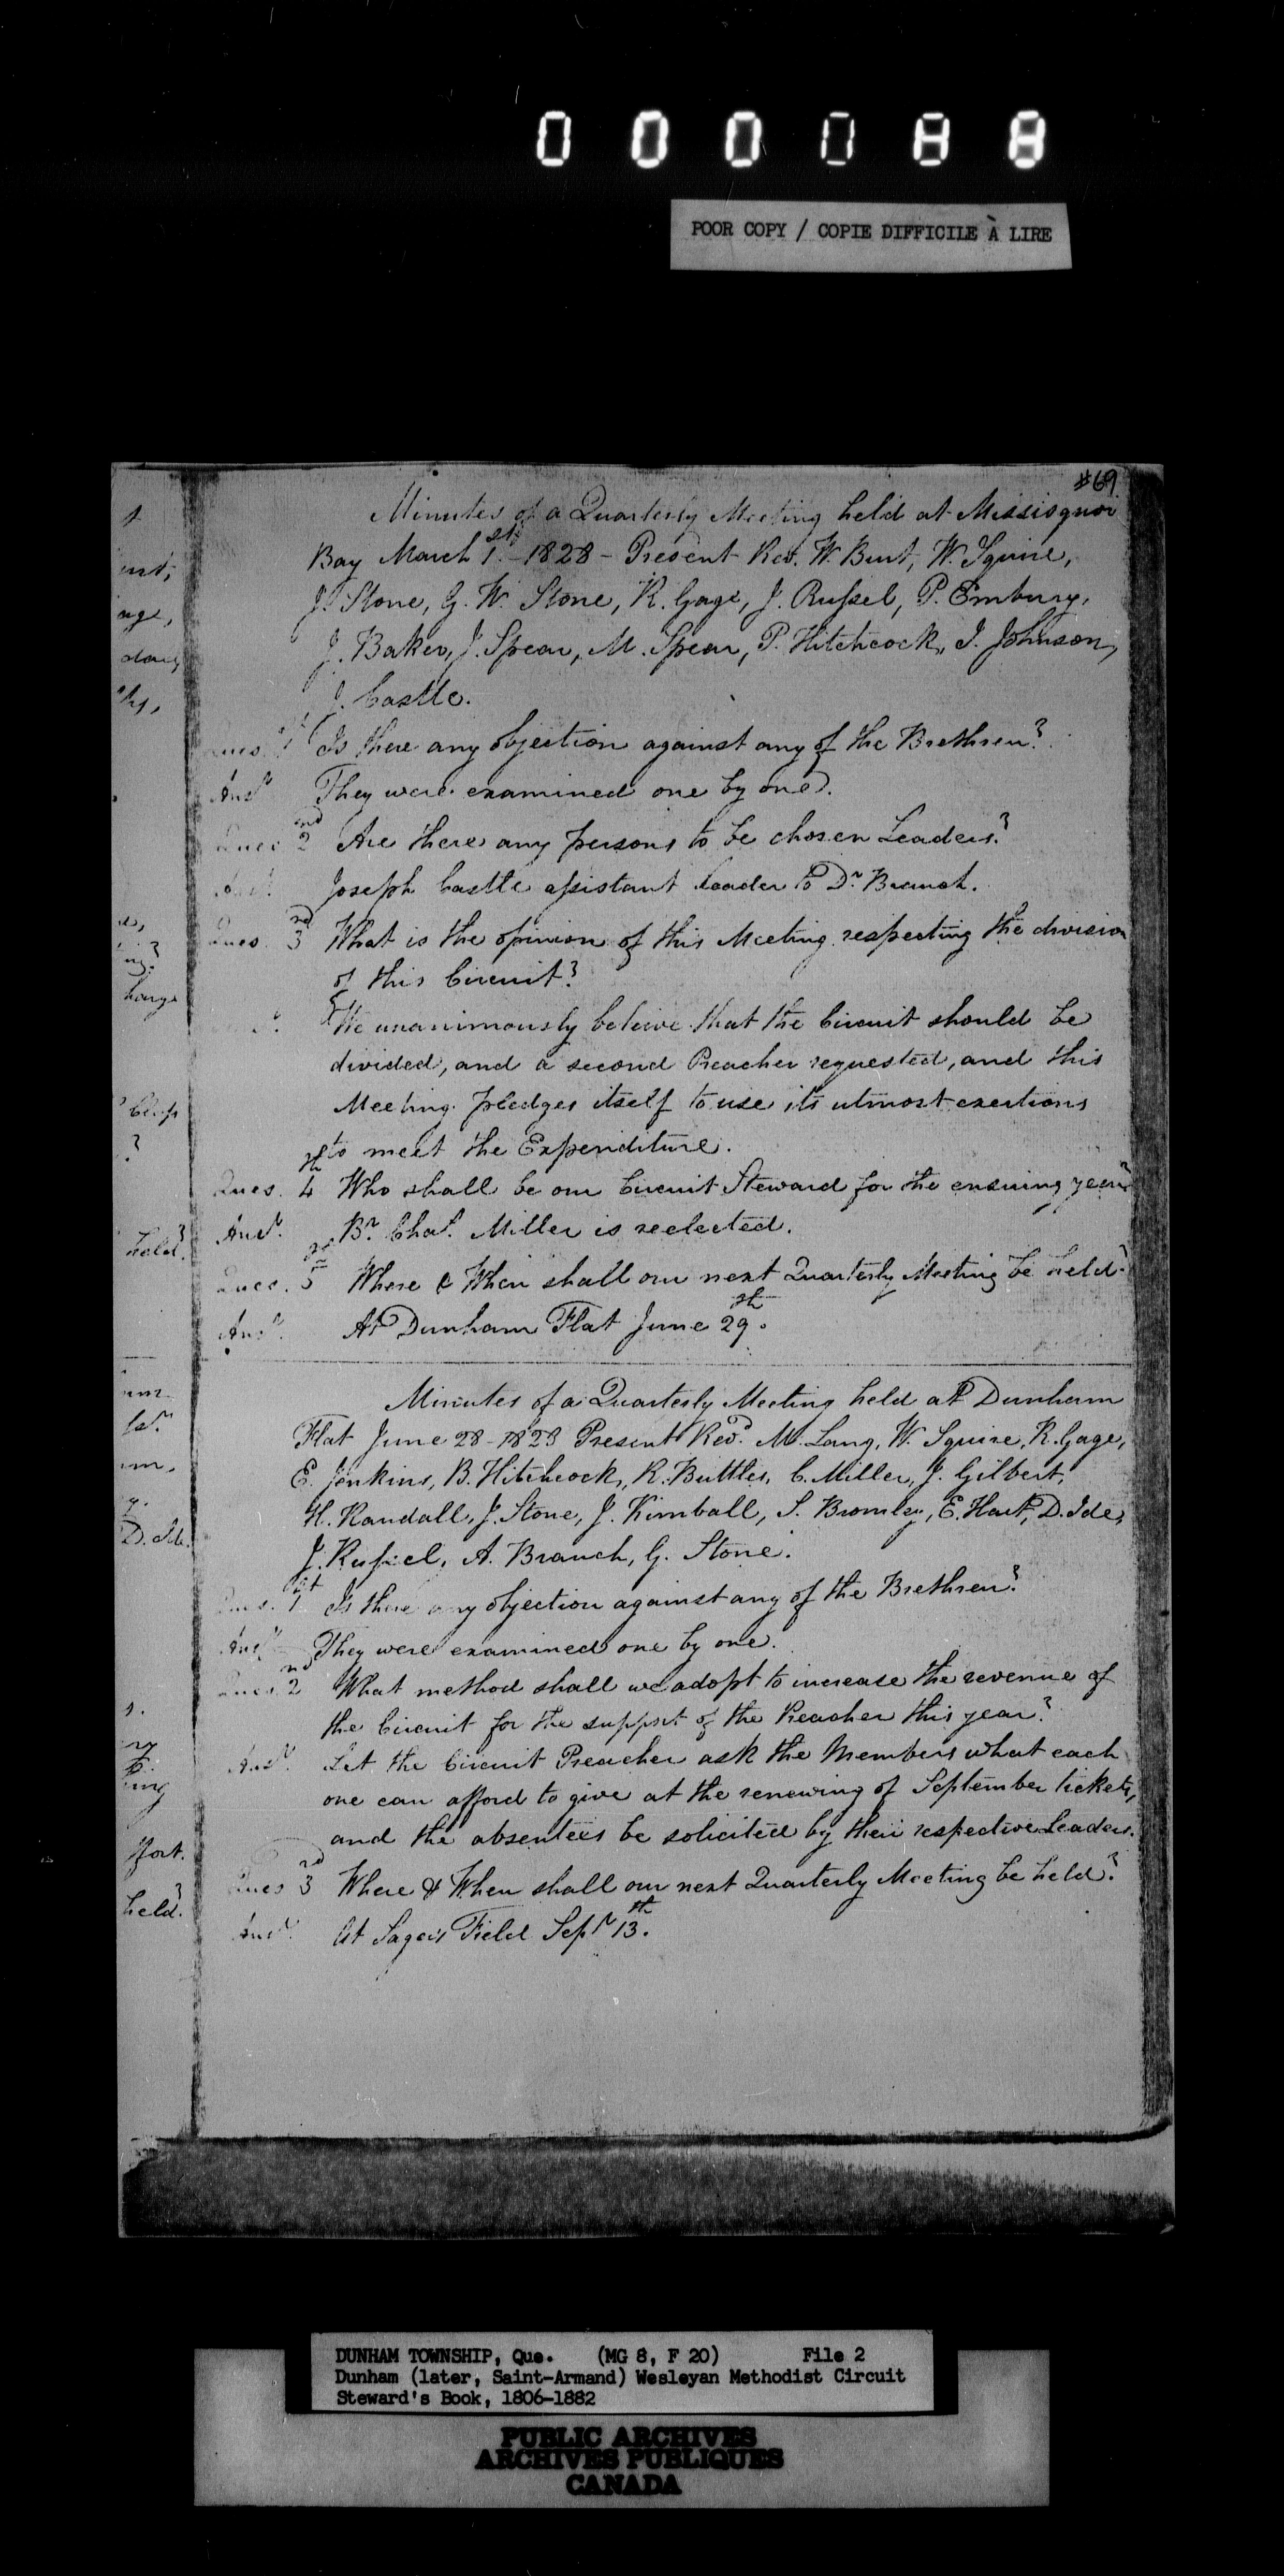 000088
POOR COPY / COPIE DIFFICILE À LIRE
#69.
Minutes of a Quarterly Meeting held at Missisquoi
Bay March 1st - 1828 - Present Rev. W. Burt, W. Squire,
J. Stone, G. W. Stone, R. Gage, J. Russel, P. Embury,
J. Baker, J. Spear, M. Spear, P. Hitchcock, I. Johnson,
J. Castle.
Ques. 1st Is there any objection against any of the Brethren?
Ansr. They were examined one by one.
Ques 2nd Are there any persons to be chosen Leaders?
Ansr. Joseph Castle assistant Leader to Dr. Branch.
Ques. 3rd What is the opinion of this Meeting respecting the division
of this Circuit?
We unanimously beleive that the Circuit should be
divided, and a second Preacher requested, and this
Meeting pledges itself to use its utmost exertions
to meet the Expenditure.
Ques. 4th Who shall be our Circuit Steward for the ensuing year?
Ansr. Br. Chas. Miller is reelected.
Ques. 5th Where & When shall our next Quarterly Meeting be held?
Ansr. At Dunham Flat June 29th.
Minutes of a Quarterly Meeting held at Dunham
Flat June 28 - 1828 Present Revd. M. Lang, W. Squire, R. Gage,
E. Jenkins, B. Hitchcock, R. Buttles, C. Miller, J. Gilbert,
H. Randall, J. Stone, J. Kimball, S. Bromley, E. Hart, D. Ide,
J. Russel, A. Branch, G. Stone.
Ques. 1st Is there any objection against any of the Brethren?
Ansr. They were examined one by one.
Ques. 2nd What method shall we adopt to increase the revenue of
the Circuit for the support of the Preacher this year?
Ansr. Let the Circuit Preacher ask the Members what each
one can afford to give at the renewing of September tickets,
and the absentees be solicited by their respective Leaders.
Ques 3rd Where & When shall our next Quarterly Meeting be held?
Ansr. At Sagers Field Sepr 13th.
held?
D. Ide.
held?
DUNHAM TOWNSHIP, Que. (MG 8, F 20) File 2
Dunham (later, Saint-Armand) Wesleyan Methodist Circuit
Steward's Book, 1806-1882
PUBLIC ARCHIVES
ARCHIVES PUBLIQUES
CANADA